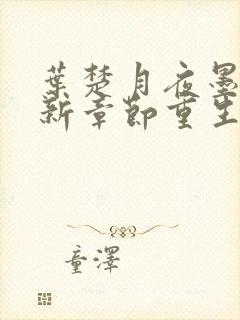 葉楚月夜墨
新章節重生
童澤